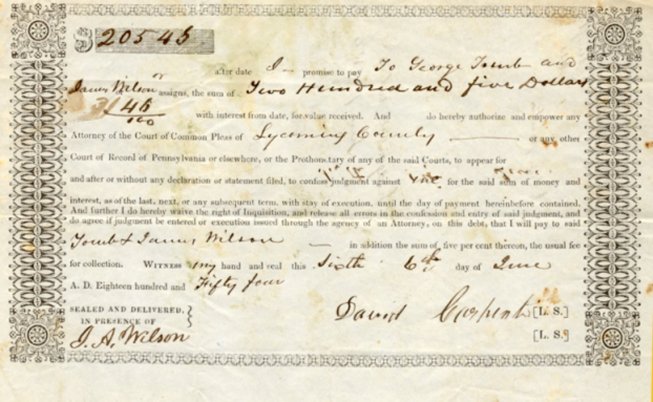 $205 45
after date I promise to pay To George Tomb and
James Wilson or assigns, the sum of Two Hundred and five Dollars
45/100 with interest from date, for value received. And do hereby authorize and empower any
Attorney of the Court of Common Pleas of Lycoming County or any other
Court of Record of Pennsylvania or elsewhere, or the Prothonotary of any of the said Courts, to appear for
and after or without any declaration or statement filed, to confess judgment against me for the said sum of money and
interest, as of the last, next, or any subsequent term, with stay of execution, until the day of payment hereinbefore contained.
And further I do hereby waive the right of Inquisition, and release all errors in the confession and entry of said judgment, and
do agree if judgment be entered or execution issued through the agency of an Attorney, on this debt, that I will pay to said
Tomb & James Wilson in addition the sum of five per cent thereon, the usual fee
for collection. WITNESS my hand and seal this Sixth 6th day of June
A. D. Eighteen hundred and Fifty four
SEALED AND DELIVERED,
IN PRESENCE OF
David Carpenter [L. S.]
J. A. Wilson [L. S.]